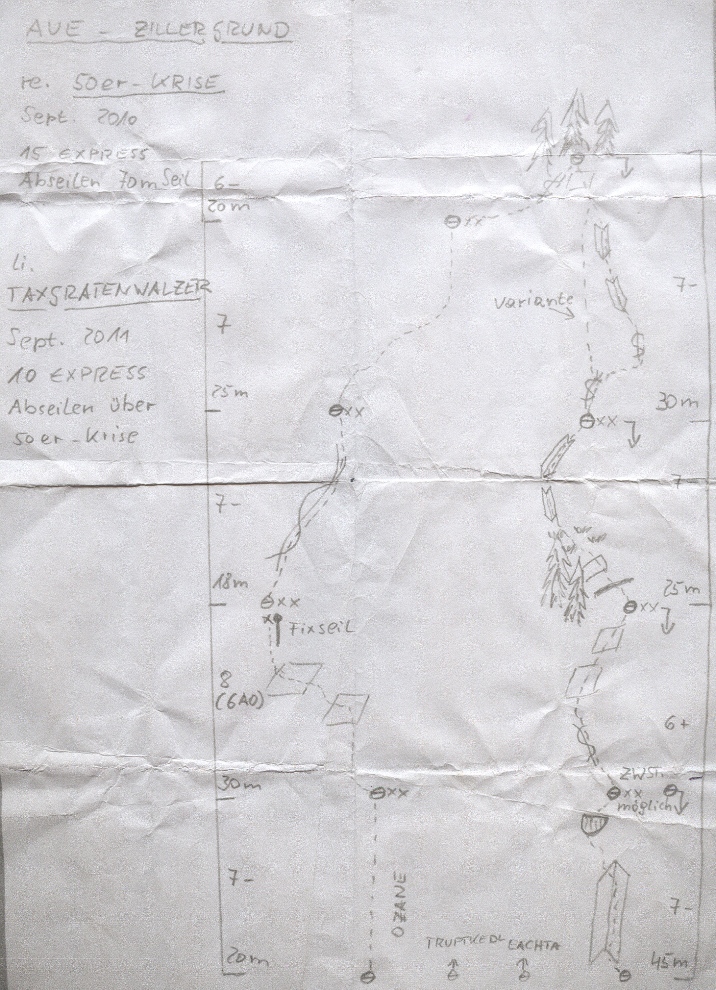 AUE - ZILLERGRUND
re. 50er-KRISE
Sept. 2010
15 EXPRESS
Abseilen 70m Seil
6-
20m
xx
li.
TAXGRATENWALZER
Sept. 2011
10 EXPRESS
Abseilen über
50er-Krise
7
25m
xx
variante
7-
30m
xx
7-
18m
xx
Fixseil
8
(6A0)
7
25m
xx
6+
30m
xx
ZWST.
xx
möglich
7-
20m
OZANE
TRUPTKEDL
LACHTA
7-
45m